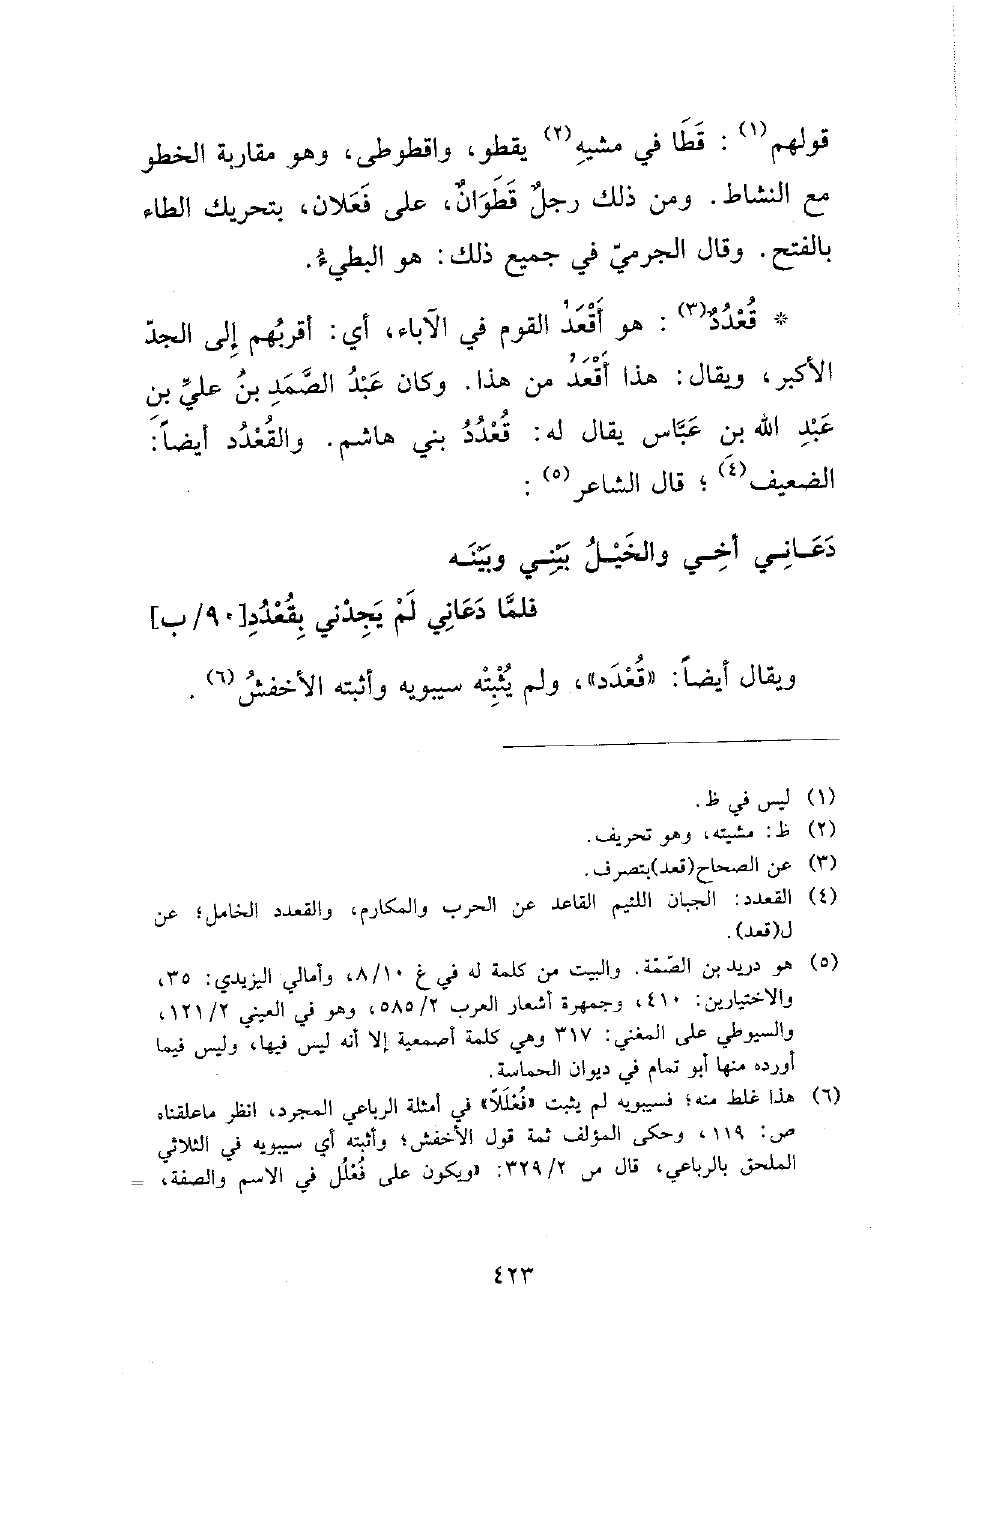 قولهم(١) : قَطَا في مشيهِ(٢) يقطو، واقطوطى، وهو مقاربة الخطو
مع النشاط. ومن ذلك رجلٌ قَطَوَانٌ، على فَعَلان، بتحريك الطاء
بالفتح. وقال الجرميّ في جميع ذلك: هو البطيءُ.
* قُعْدُدٌ(٣) : هو أَقْعَدُ القوم في الآباء، أي: أقربُهم إلى الجدّ
الأكبر، ويقال: هذا أَقْعَدُ من هذا. وكان عَبْدُ الصَّمَدِ بنُ عليِّ بنِ
عَبْدِ الله بنِ عَبَّاس يقال له: قُعْدُدُ بني هاشم. والقُعْدُد أيضاً:
الضعيف(٤) ؛ قال الشاعر(٥) :
دَعَـانِـي أخِـي والخَيْـلُ بَيْنِـي وبَيْنَـه
فلمَّا دَعَانِي لَمْ يَجِدْني بِقُعْدُدِ[٩٠/ب]
ويقال أيضاً: «قُعْدَد»، ولم يُثْبِتْه سيبويه وأثبته الأخفشُ(٦) .
(١) ليس في ظ.
(٢) ظ: مشيته، وهو تحريف.
(٣) عن الصحاح(قعد)بتصرف.
(٤) القعدد: الجبان اللئيم القاعد عن الحرب والمكارم، والقعدد الخامل؛ عن
ل(قعد).
(٥) هو دريد بن الصّمّة. والبيت من كلمة له في غ ٨/١٠، وأمالي اليزيدي: ٣٥،
والاختيارين: ٤١٠، وجمهرة أشعار العرب ٥٨٥/٢، وهو في العيني ١٢١/٢،
والسيوطي على المغني: ٣١٧ وهي كلمة أصمعية إلا أنه ليس فيها، وليس فيما
أورده منها أبو تمام في ديوان الحماسة.
(٦) هذا غلط منه؛ فسيبويه لم يثبت «فُعْلَلاً» في أمثلة الرباعي المجرد، انظر ماعلقناه
ص: ١١٩، وحكى المؤلف ثمة قول الأخفش؛ وأثبته أي سيبويه في الثلاثي
الملحق بالرباعي، قال من ٣٢٩/٢: «ويكون على فُعْلُل في الاسم والصفة، =
٤٢٣